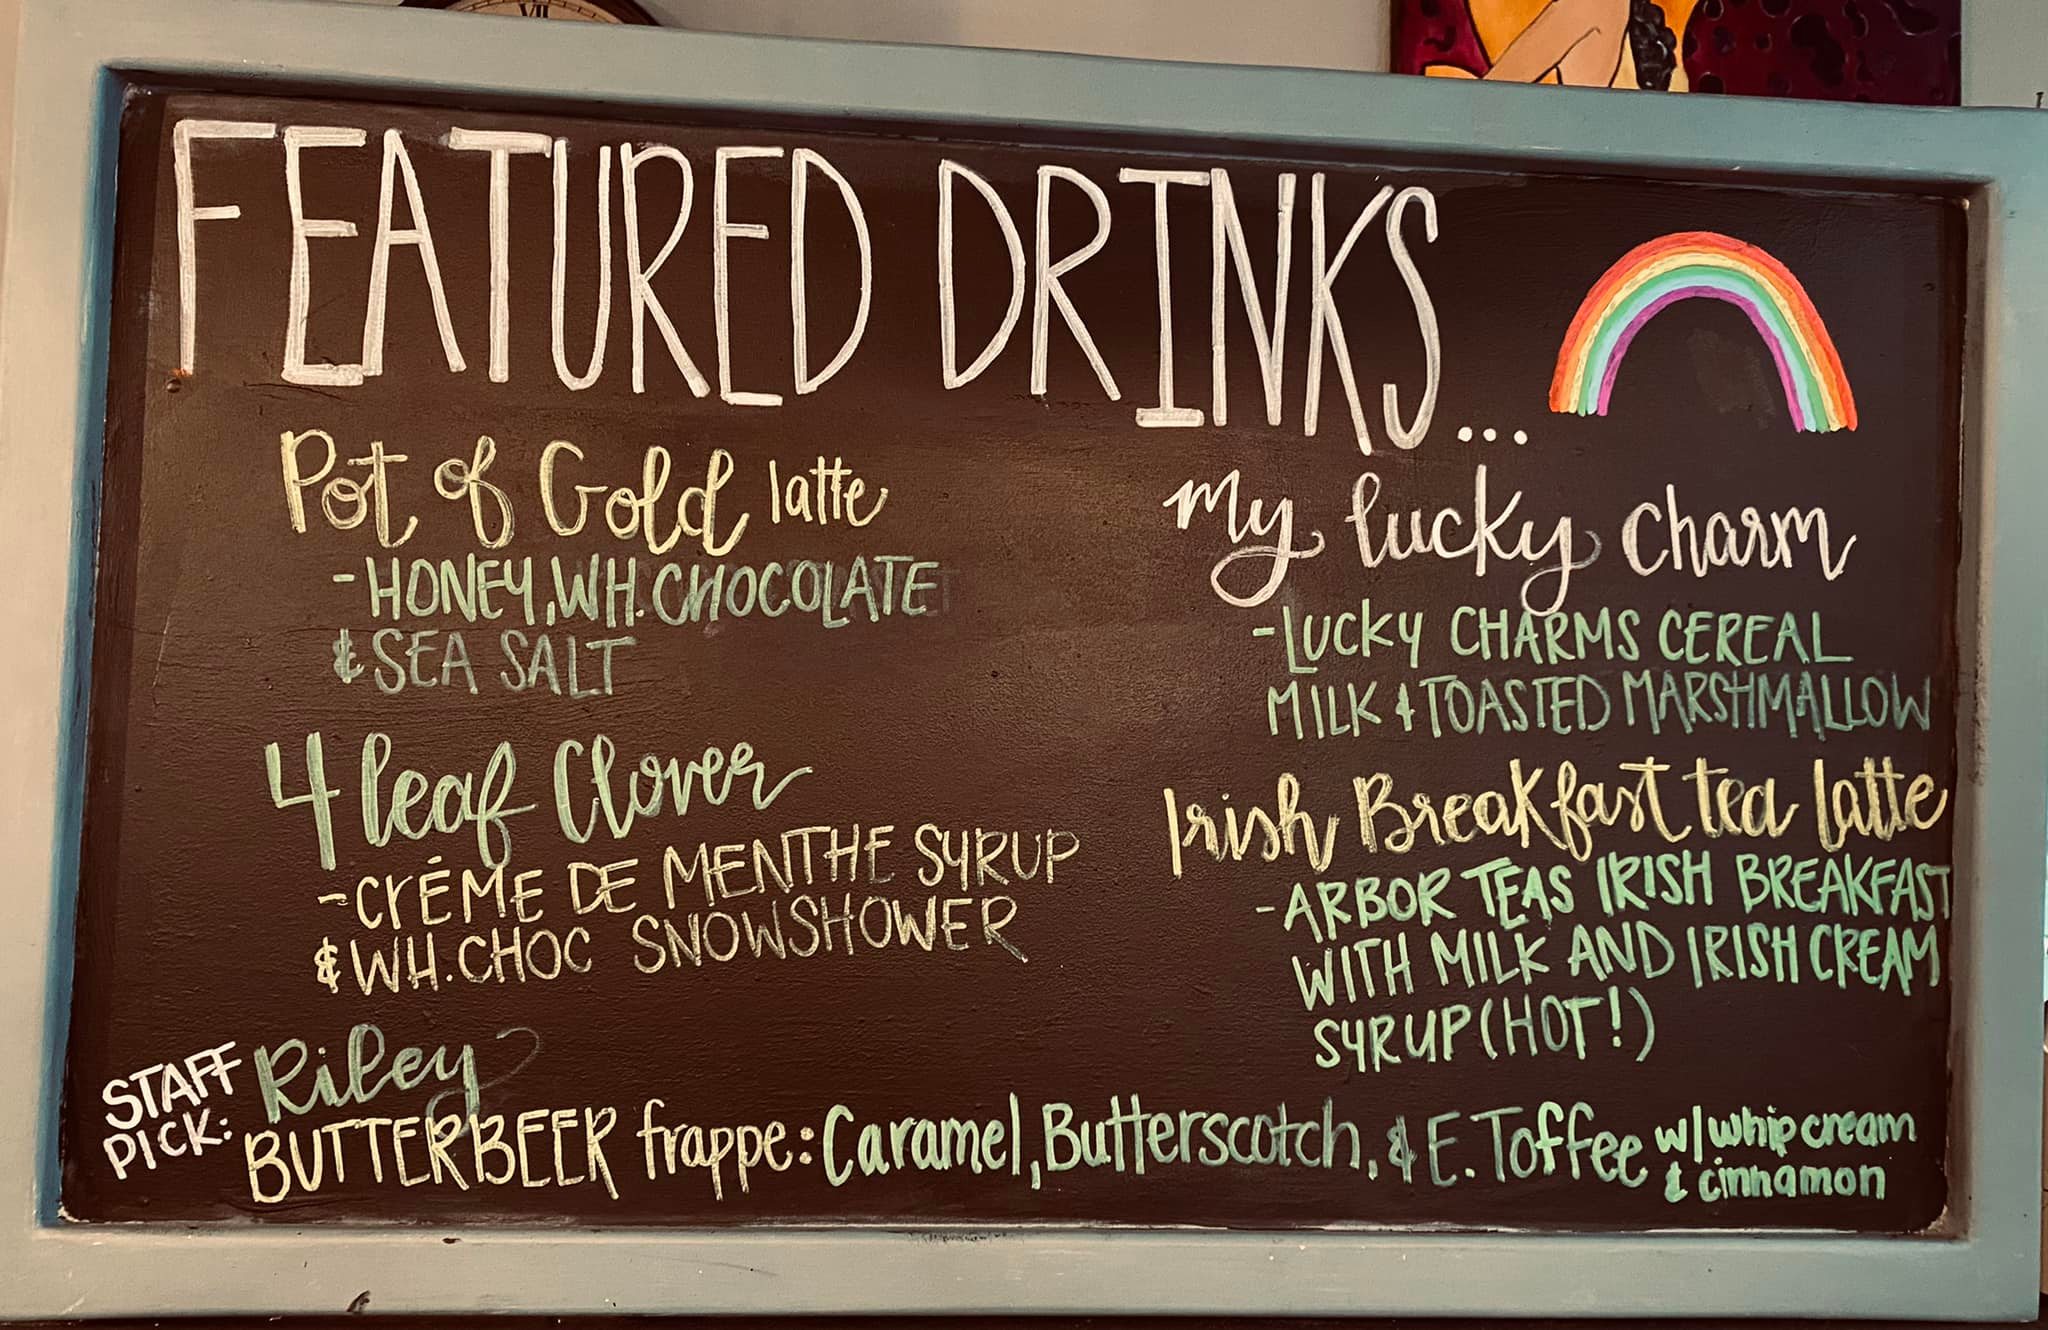 VII
FEATURED DRINKS...
Pot of Gold latte
-HONEY, WH. CHOCOLATE
& SEA SALT
4 leaf Clover
-CRÉME DE MENTHE SYRUP
& WH. CHOC SNOWSHOWER
My lucky charm
-LUCKY CHARMS CEREAL
MILK & TOASTED MARSHMALLOW
Irish Breakfast tea latte
-ARBOR TEAS IRISH BREAKFAST
WITH MILK AND IRISH CREAM
SYRUP (HOT!)
STAFF
PICK:
Riley
BUTTERBEER frappe: Caramel, Butterscotch, & E. Toffee w/ whip cream
& cinnamon